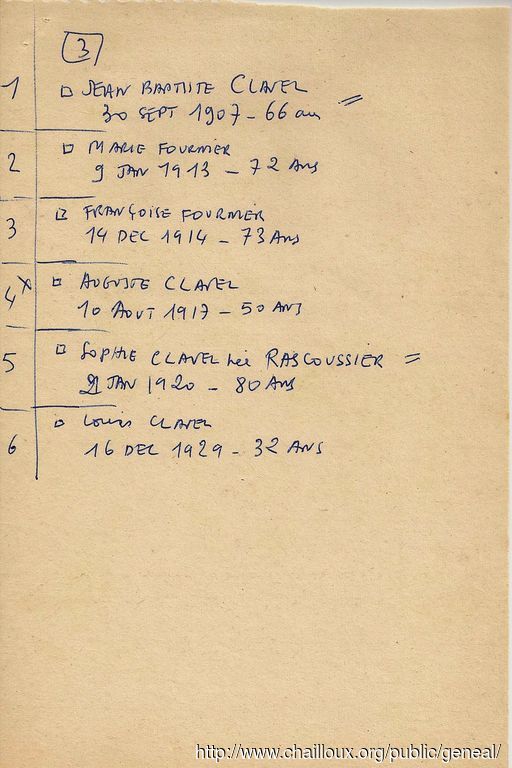 3
1 JEAN BAPTISTE CLAVEL =
30 SEPT 1907 - 66 ans
2 MARIE FOURNIER
9 JAN 1913 - 72 ANS
3 FRANÇOISE FOURNIER
14 DEC 1914 - 73 ANS
4 x AUGUSTE CLAVEL
10 AOUT 1917 - 50 ANS
5 SOPHIE CLAVEL née RASCOUSSIER =
JAN 1920 - 80 ANS
6 LOUIS CLAVEL
16 DEC 1929 - 32 ANS
http://www.chailloux.org/public/geneal/